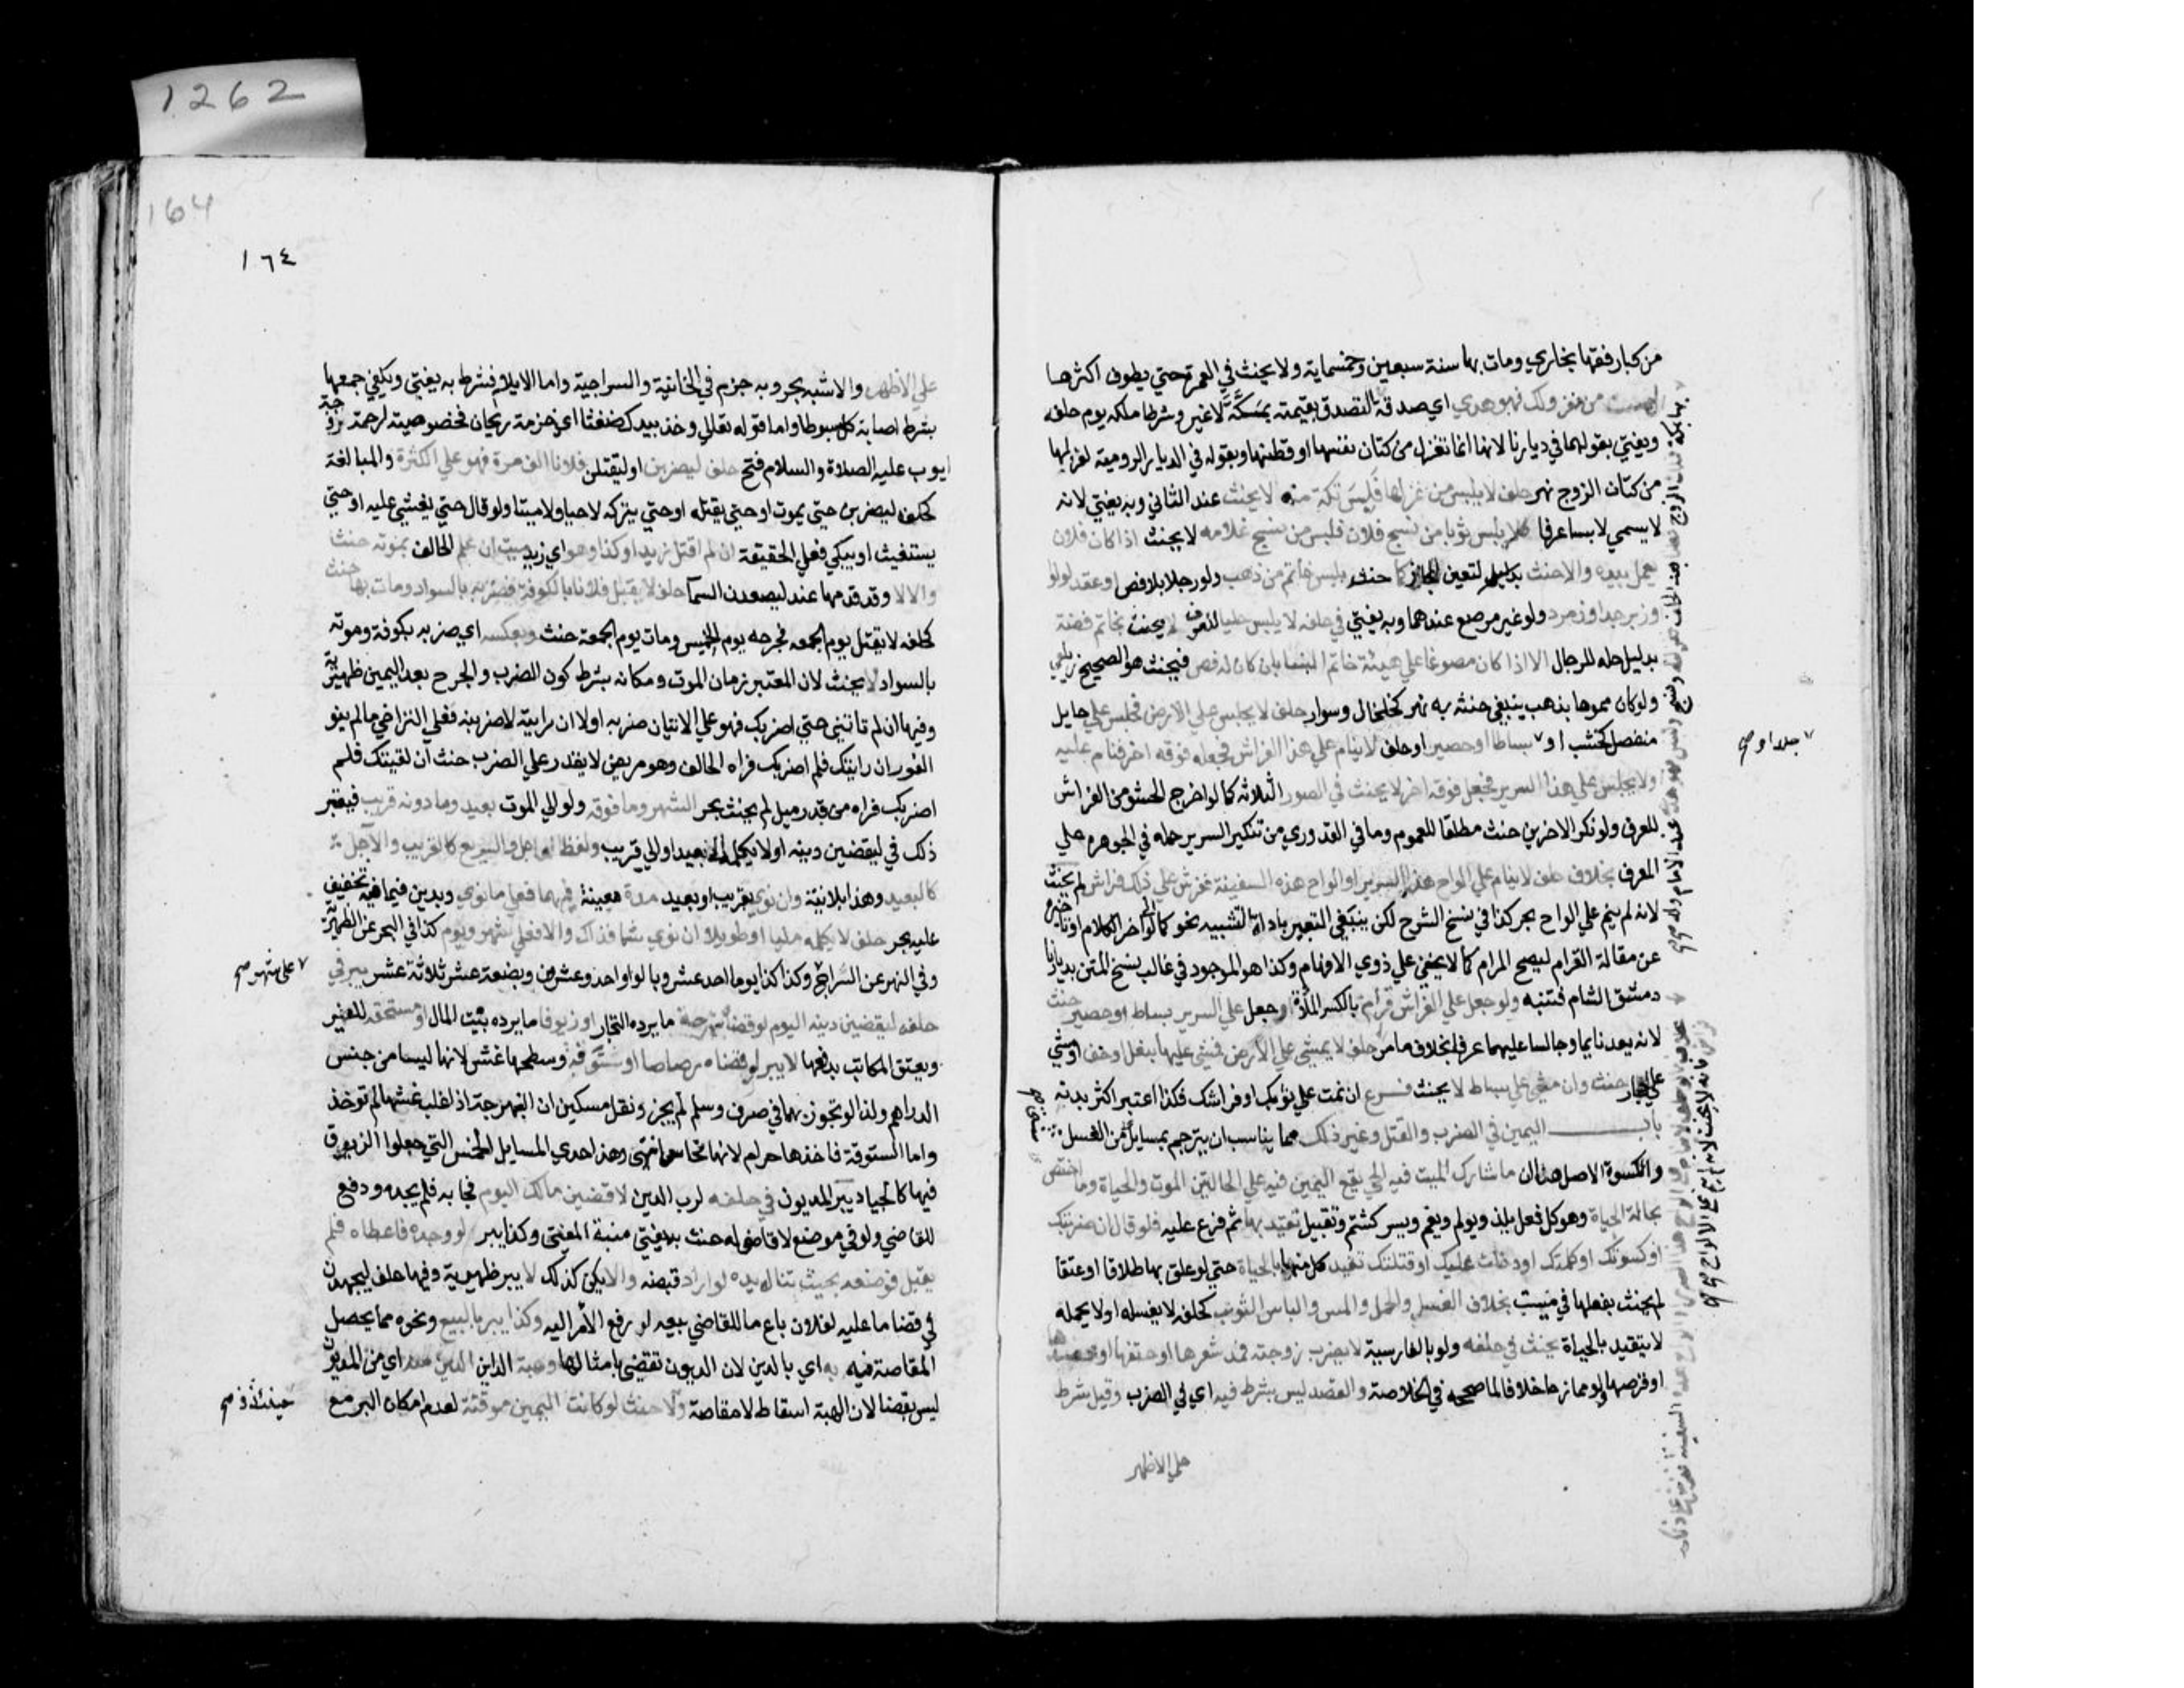 1262
من كبار فقها بخاري ومات بها سنة سبعين وخمسماية ولا يحنث في العمرة حتي يطوف اكثرها
من غزلك فهو هدي اي صدقة التصدق بقيمته بمكة لا غير وشرطا ملكه يوم حلف
ويفتي بقولهما في ديارنا لانها انما تغزل من كتان نفسها او قطنها وبقوله في الديار الرومية لغزلها
من كتان الزوج نهر حلف لا يلبس من غزلها فلبس تكة منه لا يحنث عند الثاني وبه يفتي لانه
لا يسمي لابسا عرفا كلا يلبس ثوبا من نسج فلان فلبس من نسج غلامه لا يحنث اذا كان فلان
يعمل بيده والا حنث لتعين المجاز كما حنث بلبس خاتم من ذهب ولو رجلا بلا فص او عقد لولو
وزبرجد او زمرد ولو غير مرصع عندهما وبه يفتي في حلفه لا يلبس حليا للعرف لا يحنث بخاتم فضة
بدليل حله للرجال الا اذا كان مصوغا علي هيئة خاتم النسا بان كان له فص فيحنث هو الصحيح زيلعي
ولو كان مموها بذهب ينبغي حنثه به نهر كخلخال وسوار حلف لا يجلس علي الارض فجلس علي حايل
منفصل كخشب او ٧ بساط او حصير او حلف لا ينام علي هذا الفراش فجعله فوقه اخر فنام عليه
او لا يجلس علي هذا السرير فجعل فوقه اخر لا يحنث في الصور الثلاثه كما لو اخرج الحشو من الفراش
للعرف ولو نكر الاخرين حنث مطلقا للعموم وما في القدوري من تنكير السرير حمله في الجوهره علي
المعرف بخلاف حلف لا ينام علي الواح هذا السرير او الواح هذه السفينة ففرش علي ذلك فراش لم يحنث
لانه لم ينم علي الالواح بحر كذا في نسخ الشرح لكن ينبغي التعبير باداة التشبيه نحو كما لو اخر الكلام او تاخيره
عن مقالة القرام ليصح المرام كما لا يخفي علي ذوي الافهام وكذا هو الموجود في غالب نسخ المتن بديارنا
دمشق الشام فتنبه ولو جعل علي الفراش قرام بالكسر الملاة او جعل علي السرير بساط او حصير حنث
لانه يعد نايما وجالسا عليهما عرفا بخلاف ما مر حلف لا يمشي علي الارض فمشي عليها بنعل او خف او مشي
علي احجار حنث وان مشي علي بساط لا يحنث فرع ان نمت علي ثوبك او فراشك فكذا اعتبر اكثر بدنه
باب اليمين في الضرب والقتل وغير ذلك مما يناسب ان يترجم بمسايل من الغسل
والكسوة الاصل هنا ان ما شارك الميت فيه الحي يقع اليمين فيه علي الحالتين الموت والحياة وما اختص
بحالة الحياة وهو كل فعل يلذ ويولم ويغم ويسر كشتم وتقبيل تقيد بها ثم فرع عليه فلو قال ان ضربتك
او كسوتك او كلمتك او دخلت عليك او قتلتك تقيد كل منها بالحياة حتي لو علق بها طلاقا او عتقا
لم يحنث بفعلها في ميت بخلاف الغسل والحمل والمس والباس الثوب كحلفه لا يغسله او لا يحمله
لا يتقيد بالحياة يحنث في حلفه ولو بالفارسية لا يضرب زوجته فمد شعرها او خنقها او عضها
او قرصها ولو ممازحا خلافا لما صححه في الخلاصة والقصد ليس بشرط فيه اي في الضرب وقيل شرط
علي الاظهر
٧ جلد او صح
164
١٦٤
علي الاظهر والاشبه بحر وبه جزم في الخانية والسراجية واما الايلام فشرط به يفتي ويكفي جمعها
بشرط اصابة كل سوط واما قوله تعالي وخذ بيدك ضغثا اي حزمة ريحان فخصوصية لرحمة زوجة
ايوب عليه الصلاة والسلام فتح حلف ليضربن او ليقتلن فلانا الف مرة فهو علي الكثرة والمبالغة
كحلفه ليضربن حتي يموت او حتي يقتله او حتي يتركه لا حيا ولا ميتا ولو قال حتي يغشي عليه او حتي
يستغيث او يبكي فعلي الحقيقة ان لم اقتل زيدا وكذا وهو اي زيد ميت ان علم الحالف بموته حنث
والا لا وقد قدمها عند ليصعدن السما حلف لا يقتل فلانا بالكوفة فضربه بالسواد ومات بها حنث
كحلفه لا يقتل يوم الجمعه فجرحه يوم الخميس ومات يوم الجمعة حنث وبعكسه اي ضربه بكوفة وموته
بالسواد لا يحنث لان المعتبر زمان الموت ومكانه بشرط كون الضرب والجرح بعد اليمين ظهيرية
وفيها ان لم تاتني حتي اضربك فهو علي الاتيان ضربه اولا ان رايته لاضربنه فعلي التراخي ما لم ينو
الفور ان رايتك فلم اضربك فراه الحالف وهو مريض لا يقدر علي الضرب حنث ان لقيتك فلم
اضربك فراه من قدر ميل لم يحنث بحر الشهر وما فوقه ولو الي الموت بعيد وما دونه قريب فيعتبر
ذلك في ليقضين دينه او لا يكلمه الي بعيد او الي قريب ولفظ العاجل والسريع كالقريب والآجل
كالبعيد وهذا بلا نية وان نوي بقريب او بعيد مدة معينة فيهما فعلي ما نوي ويدين فيما فيه تخفيف
عليه بحر حلف لا يكلمه مليا او طويلا ان نوي شيا فذاك والا فعلي شهر ويوم كذا في البحر عن الظهيرية
وفي النهر عن السراج وكذا كذا يوما احد عشر وبالواو احد وعشرون وبضعة عشر ثلاثة عشر يبر في
حلفه ليقضين دينه اليوم لو قضاه نبهرجة ما يرده التجار او زيوفا ما يرده بيت المال او مستحقه للغير
ويعتق المكاتب بدفعها لا يبر لو قضاه رصاصا او ستوقة وسطحها غش لانها ليسا من جنس
الدراهم ولذا لو تجوز بهما في صرف وسلم لم يجز ونقل مسكين ان النبهرجة اذا غلب غشها لم توخذ
واما الستوقة فاخذها حرام لانها نحاس انتهي وهذا احدي المسايل الخمس التي جعلوا الزيوف
فيها كالجياد يبر المديون في حلفه لرب الدين لاقضين مالك اليوم فجا به فلم يجده ودفع
للقاضي ولو في موضع لا قاضي له حنث به يفتي منية المفتي وكذا يبر لو وجده فاعطاه فلم
يقبل فوضعه بحيث تناله يده لو اراد قبضه والا يكن كذلك لا يبر ظهيرية وفيها حلف ليجهدن
في قضا ما عليه لفلان باع ما للقاضي بيعه لو رفع الامر اليه وكذا يبر بالبيع ونحوه مما يحصل
المقاصة فيه به اي بالدين لان الديون تقضي بامثالها وهبة الداين الدين منه اي من المديون
ليس بقضا لان الهبة اسقاط لا مقاصة ولا حنث لو كانت اليمين موقتة لعدم امكان البر مع
٧ علي شهر صح
حينئذ صح